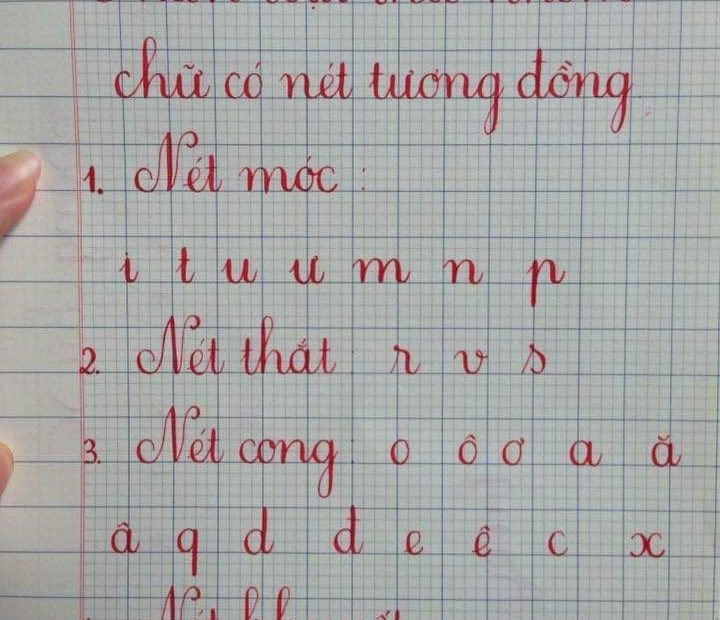 chữ có nét tương đồng
1. Nét móc :
i t u ư m n p
2. Nét thắt : r v s
3. Nét cong : o ô ơ a ă
â q d đ e ê c x